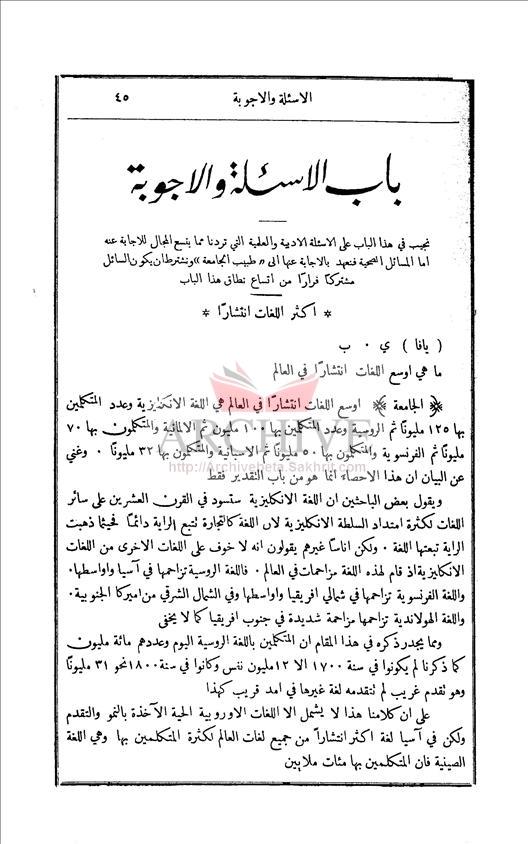 الاسئلة والاجوبة ٤٥
باب الاسئلة والاجوبة
نجيب في هذا الباب على الاسئلة الادبية والعلمية التي تردنا مما يتسع المجال للاجابة عنه
اما المسائل الصحية فنعهد بالاجابة عنها الى «طبيب الجامعة» ونشترط ان يكون السائل
مشتركًا فرارًا من اتساع نطاق هذا الباب
* اكثر اللغات انتشارًا *
( يافا ) ي ٠ ب
ما هي اوسع اللغات انتشارًا في العالم
﴿ الجامعة ﴾ اوسع اللغات انتشارًا في العالم هي اللغة الانكليزية وعدد المتكلمين
بها ١٢٥ مليونًا ثم الروسية وعدد المتكلمين بها ١٠٠ مليون ثم الالمانية والمتكلمون بها ٧٠
مليونًا ثم الفرنسوية والمتكلمون بها ٥٠ مليونًا ثم الاسبانية والمتكلمون بها ٣٢ مليونًا ٠ وغني
عن البيان ان هذا الاحصاء انما هو من باب التقدير فقط
ويقول بعض الباحثين ان اللغة الانكليزية ستسود في القرن العشرين على سائر
اللغات لكثرة امتداد السلطة الانكليزية لان اللغة كالتجارة تتبع الراية دائمًا فحيثما ذهبت
الراية تبعتها اللغة ٠ ولكن اناسًا غيرهم يقولون انه لا خوف على اللغات الاخرى من اللغات
الانكليزية اذ قام لهذه اللغة مزاحمات في العالم ٠ فاللغة الروسية تزاحمها في آسيا واواسطها٠
واللغة الفرنسوية تزاحمها في شمالي افريقيا واواسطها وفي الشمال الشرقي من اميركا الجنوبية٠
واللغة الهولاندية تزاحمها مزاحمة شديدة في جنوب افريقيا كما لا يخفى
ومما يجدر ذكره في هذا المقام ان المتكلمين باللغة الروسية اليوم وعددهم مائة مليون
كما ذكرنا لم يكونوا في سنة ١٧٠٠ الا ١٢ مليون نفس وكانوا في سنة ١٨٠٠ نحو ٣١ مليونًا
وهو تقدم غريب لم تتقدمه لغة غيرها في امد قريب كهذا
على ان كلامنا هذا لا يشمل الا اللغات الاوروبية الحية الآخذة بالنمو والتقدم
ولكن في آسيا لغة اكثر انتشاراً من جميع لغات العالم لكثرة المتكلمين بها وهي اللغة
الصينية فان المتكلمين بها مئات ملايين
ARCHIVE
http://Archivebeta.Sakhrit.com